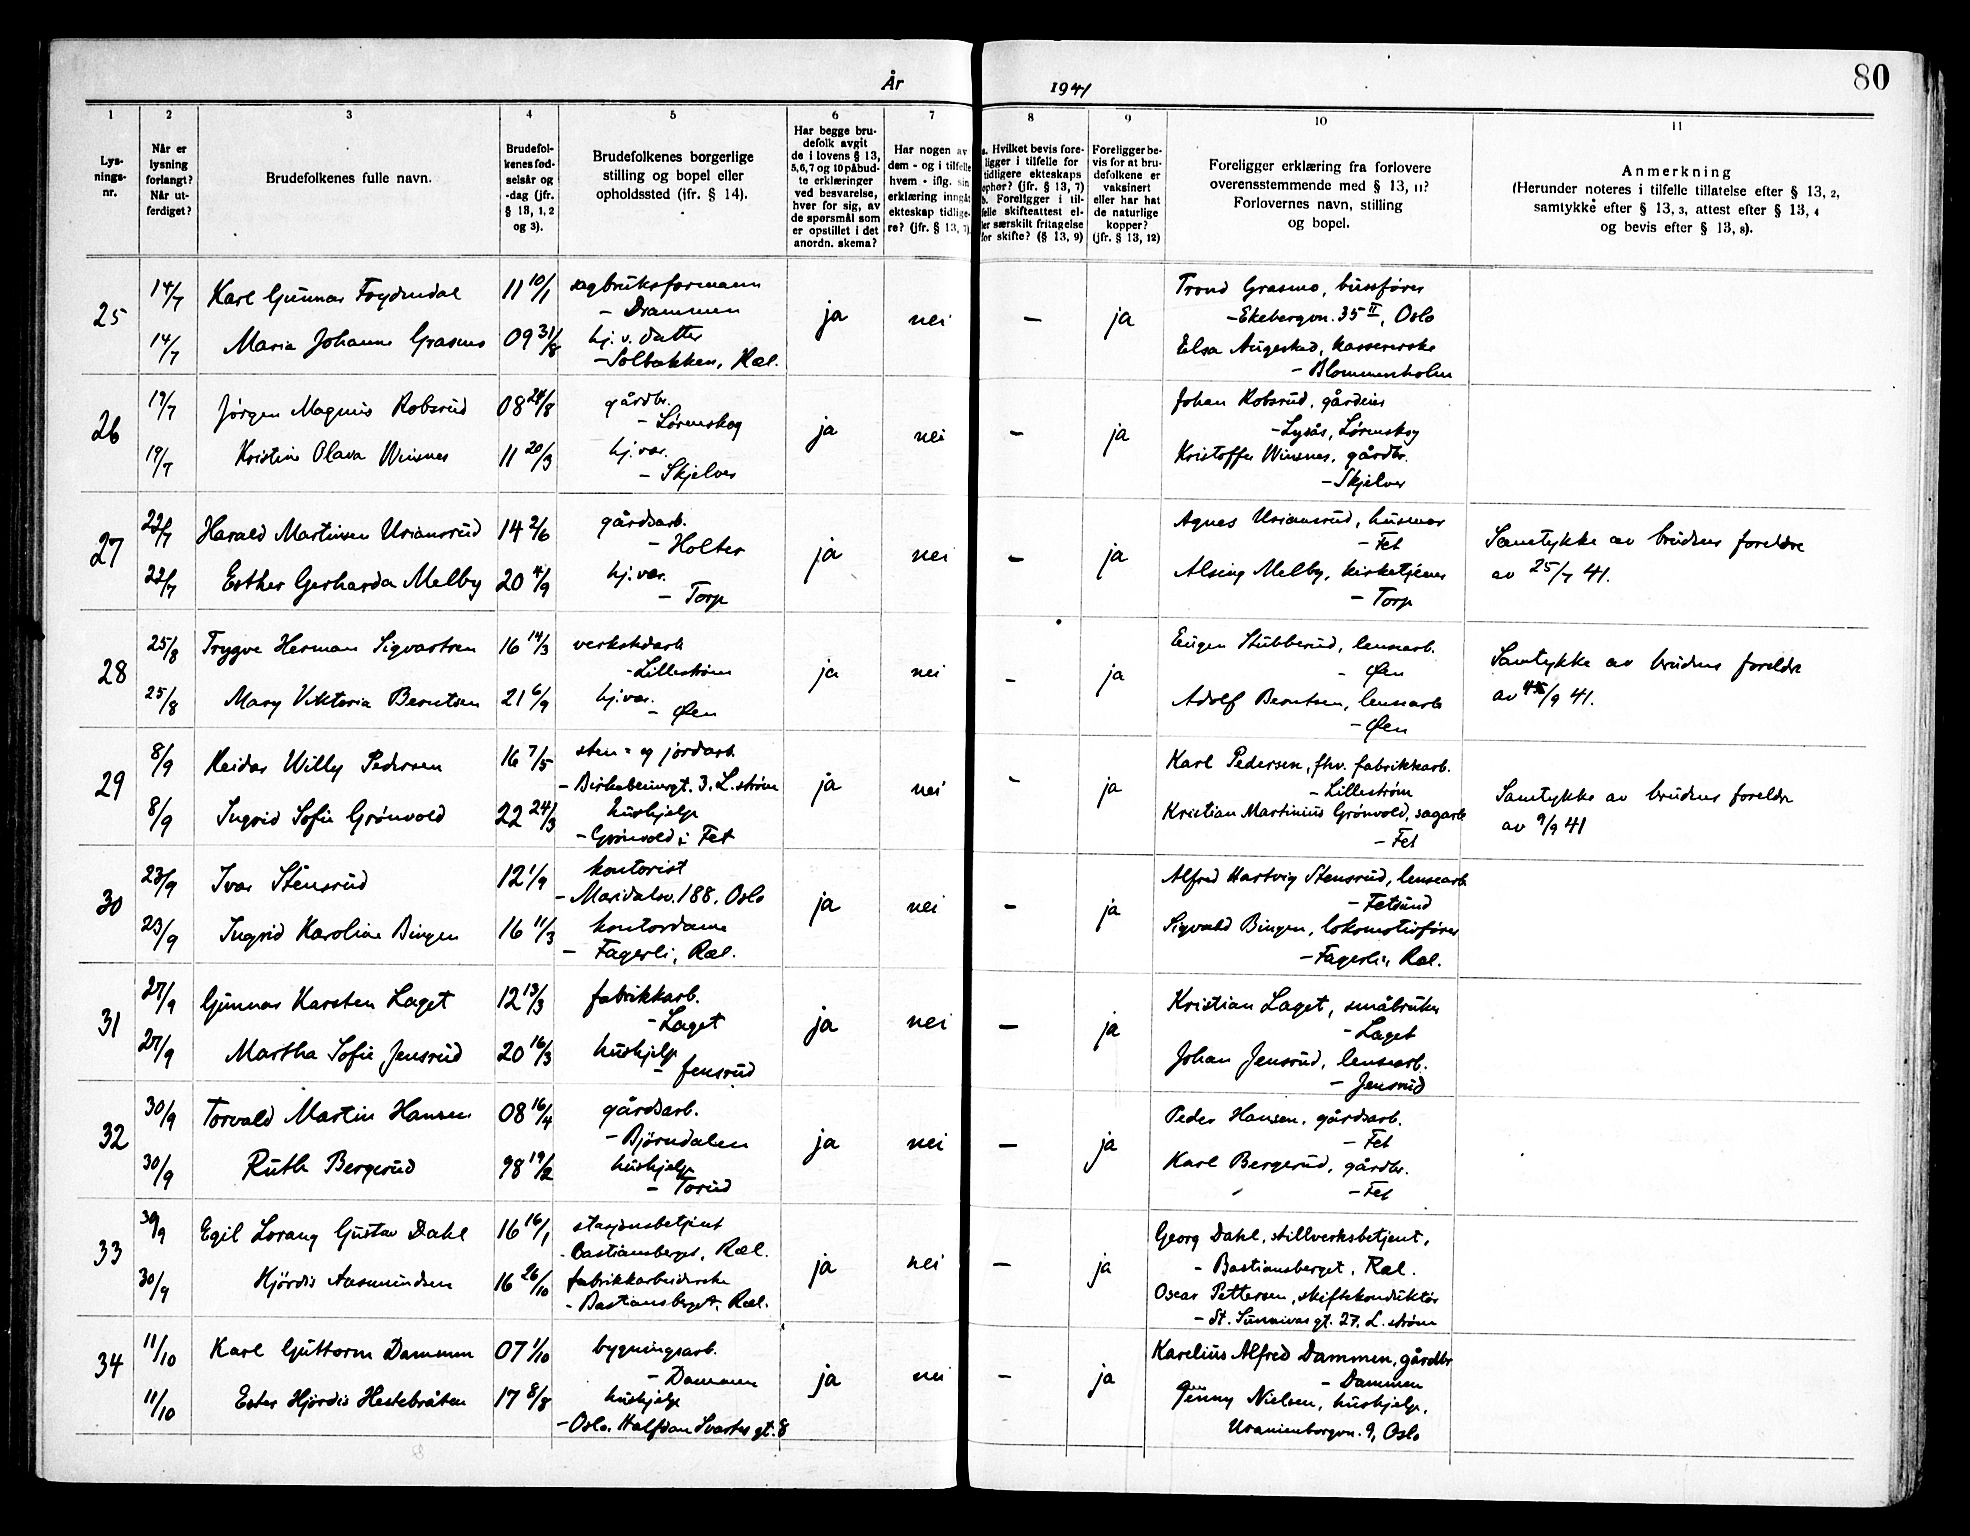 År 1941
80
1 2 3 4 5 6 7 8 9 10 11
Lys-
nings-
nr.
Når er
lysning
forlangt?
Når ut-
ferdiget?
Brudefolkenes fulle navn.
Brudefol-
kenes fød-
selsår og
-dag (jfr.
§ 13, 1, 2
og 3).
Brudefolkenes borgerlige
stilling og bopel eller
opholdssted (jfr. § 14).
Har begge bru-
defolk avgit
de i lovens § 13,
5,6,7 og 10 påbud-
te erklæringer
ved besvarelse,
hver for sig, av
de spørsmål som
er opstillet i det
anordn. skema?
Har nogen av
dem - og i tilfelle
hvem - iflg. sin
erklæring inngåt
ekteskap tidlige-
re? (jfr. § 13, 7)
a. Hvilket bevis fore-
ligger i tilfelle for
tidligere ekteskaps
ophør? (jfr. § 13, 7)
b. Foreligger i til-
felle skifteattest el-
ler særskilt fritagelse
for skifte? (§ 13, 9)
Foreligger be-
vis for at bru-
defolkene er
vaksinert
eller har hat
de naturlige
kopper?
(jfr. § 13, 12)
Foreligger erklæring fra forlovere
overensstemmende med § 13, 11?
Forlovernes navn, stilling
og bopel.
Anmerkning
(Herunder noteres i tilfelle tillatelse efter § 13, 2,
samtykke efter § 13, 3, attest efter § 13, 4
og bevis efter § 13, 8).
25
14/7 Karl Gunnar 11 10/1 sagbruksformann
- Drammen
14/7 Maria Johanne Grasmo 09 31/8 hj. v. datter
- Solbakken, Ræl.
ja nei — ja
Trond Grasmo, bussfører
- Ekebergvn. 35 II, Oslo
Elsa Augestad, kassererske
- Blommenholm
26
19/7 Jørgen Magnus Robsrud 08 28/8 gårdbr.
- Lørenskog
19/7 Kristine Olava Winsnes 11 20/3 hj. vær.
- Skjelver
ja nei — ja
Johan Robsrud, gårdeier
- Lysås, Lørenskog
Kristoffer Winsnes, gårdbr.
- Skjelver
27
22/7 Harald Martinsen Uriansrud 14 2/6 gårdsarb.
- Holter
22/7 Esther Gerharda Melby 20 4/9 hj. vær.
- Torp
ja nei — ja
Agnes Uriansrud, husmor
- Fet
Alsing Melby, kirketjener
- Torp
Samtykke av brudens foreldre
av 25/7 41.
28
25/8 Trygve Herman Sigvartsen 16 14/3 verkstedarb
- Lillestrøm
25/8 Mary Viktoria Berntsen 21 6/9 hj. vær.
- Øen
ja nei - ja
Eugen Stubberud, lensearb.
- Øen
Adolf Berntsen, lensearb
- Øen
Samtykke av brudens foreldre
av /9 41.
29
8/9 Reidar Willy Pedersen 16 7/5 sten- og jordarb.
- Birkebeinergt. 3, L.strøm
8/9 Ingrid Sofie Grønvold 22 24/3 hushjelp
- Grønvold i Fet
ja nei - ja
Karl Pedersen, fhv. fabrikkarb.
- Lillestrøm
Kristian Martinius Grønvold, sagarb
- Fet
Samtykke av brudens foreldre
av 9/9 41
30
23/9 Ivar Stensrud 12 1/9 kontorist
- Maridalsv. 188, Oslo
23/9 Ingrid Karoline Bingen 16 11/3 kontordame
- Fagerli, Ræl.
ja nei — ja
Alfred Hartvig Stensrud, lensearb
- Fetsund
Sigvald Bingen, lokomotivfører
- Fagerli, Ræl.
31
27/9 Gunnar Karsten Laget 12 13/3 fabrikkarb.
- Laget
27/9 Martha Sofie Jensrud 20 16/3 hushjelp
- Jensrud
ja nei — ja
Kristian Laget, småbruker
- Laget
Johan Jensrud, lensearb.
- Jensrud
32
30/9 Torvald Martin Hansen 08 16/4 gårdsarb.
- Bjørndalen
30/9 Ruth Bergerud 98 19/2 hushjelp
- Torud
ja nei — ja
Peder Hansen, gårdsarb.
- Fet
Karl Bergerud, gårdbr.
- Fet
33
30/9 Egil Lorang Gustav Dahl 16 16/1 stasjonsbetjent
- Bastiansberget, Ræl.
30/9 Hjördis Aasmundsen 16 26/10 fabrikkarbeiderske
- Bastiansberget, Ræl.
ja nei — ja
Georg Dahl, stillverksbetjent,
- Bastiansberget, Ræl.
Oscar Pettersen, skiftekonduktør
- St. Sunnivas gt. 27, L.strøm
34
11/10 Karl Guttorm Dammen 07 1/10 bygningsarb.
- Dammen
11/10 Ester Hjördis Hestebråten 17 8/8 hushjelp
- Oslo, Halfdan Svartes gt. 8
ja nei — ja
Karelius Alfred Dammen, gårdbr
- Dammen
Jenny Nielsen, hushjelp,
Uranienborgvn. 9, Oslo